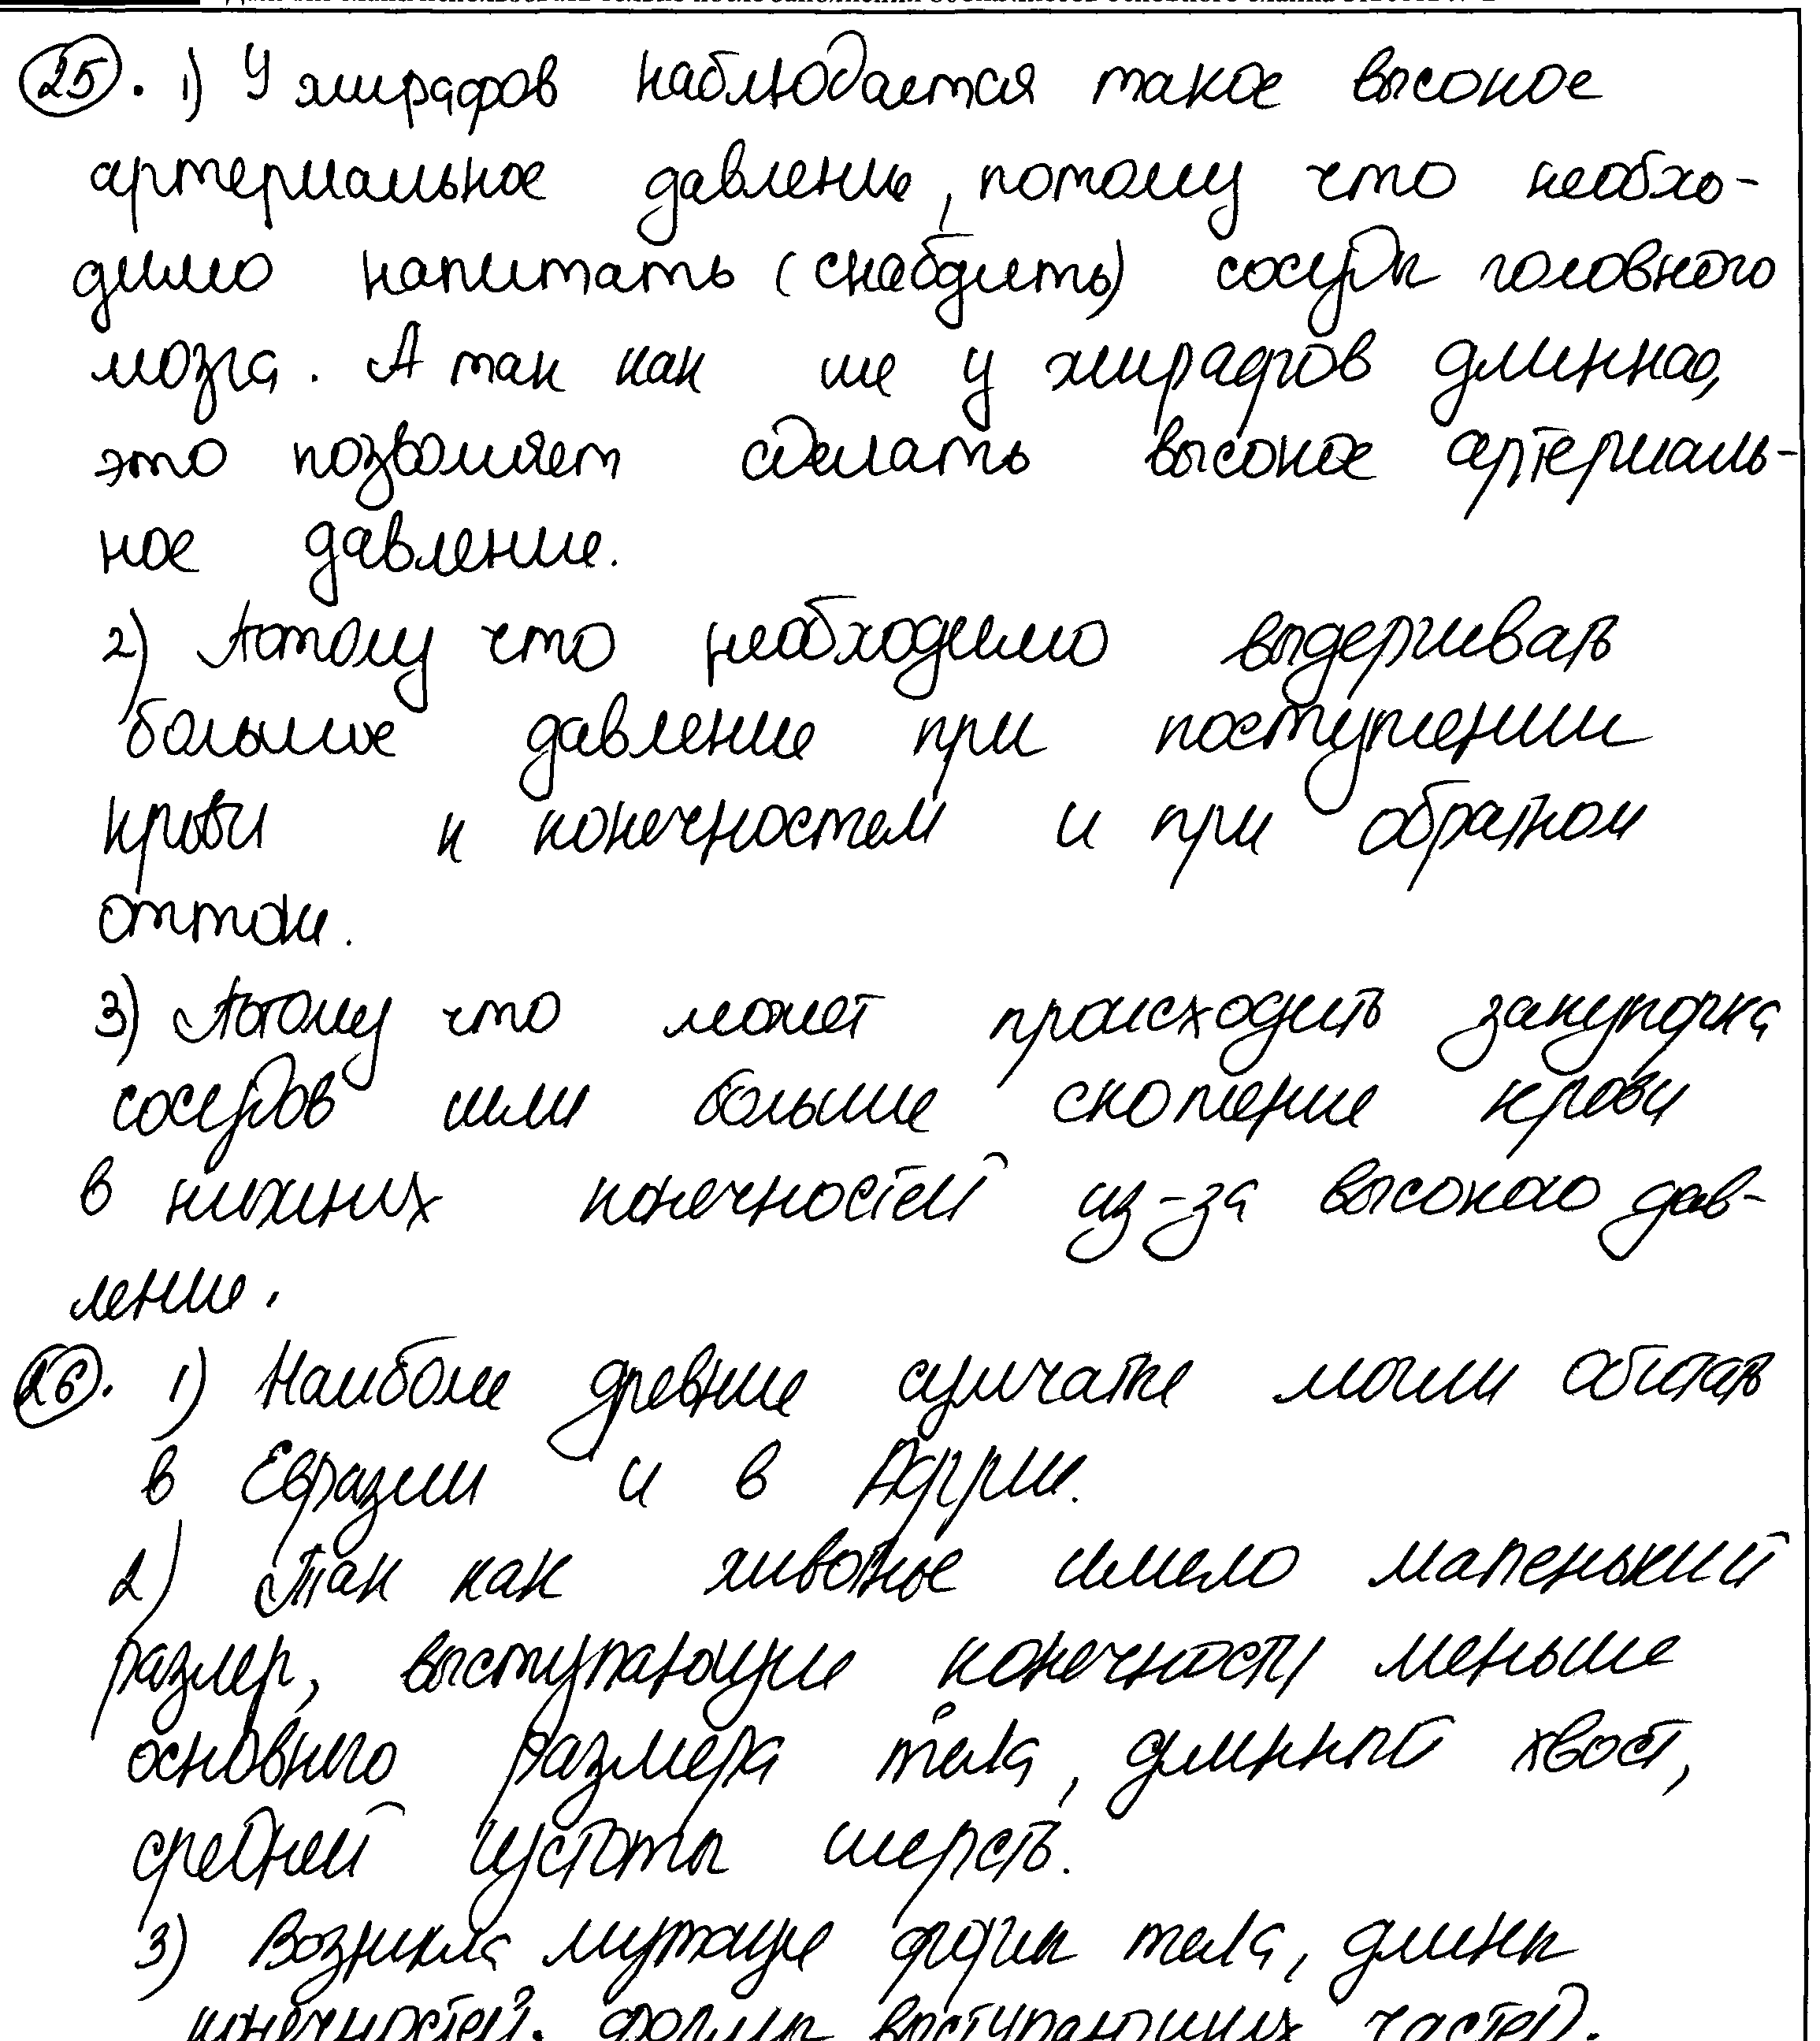 25. 1) У жирафов наблюдается такое высокое
артериальное давление, потому что необхо-
димо напитать (снабдить) сосуды головного
мозга. А так как шея у жирафов длинная,
это позволяет сделать высокое артериаль-
ное давление.
2) Потому что необходимо выдерживать
большие давление при поступлении
крови к конечностям и при обратном
оттоки.
3) Потому что может происходить закупорка
сосудов или больше скопление крови
в нижних конечностей из-за высокого дав-
ление.
26. 1) Наиболе древние сумчатые могли обитать
в Евразии и в
2) Так как животные имело маленький
размер, выступающие конечности меньше
основного размера тела, длинный хвост,
средней густоты шерсть.
3) Возникла мутация тела, длины
конечностей, формы выступающих частей.